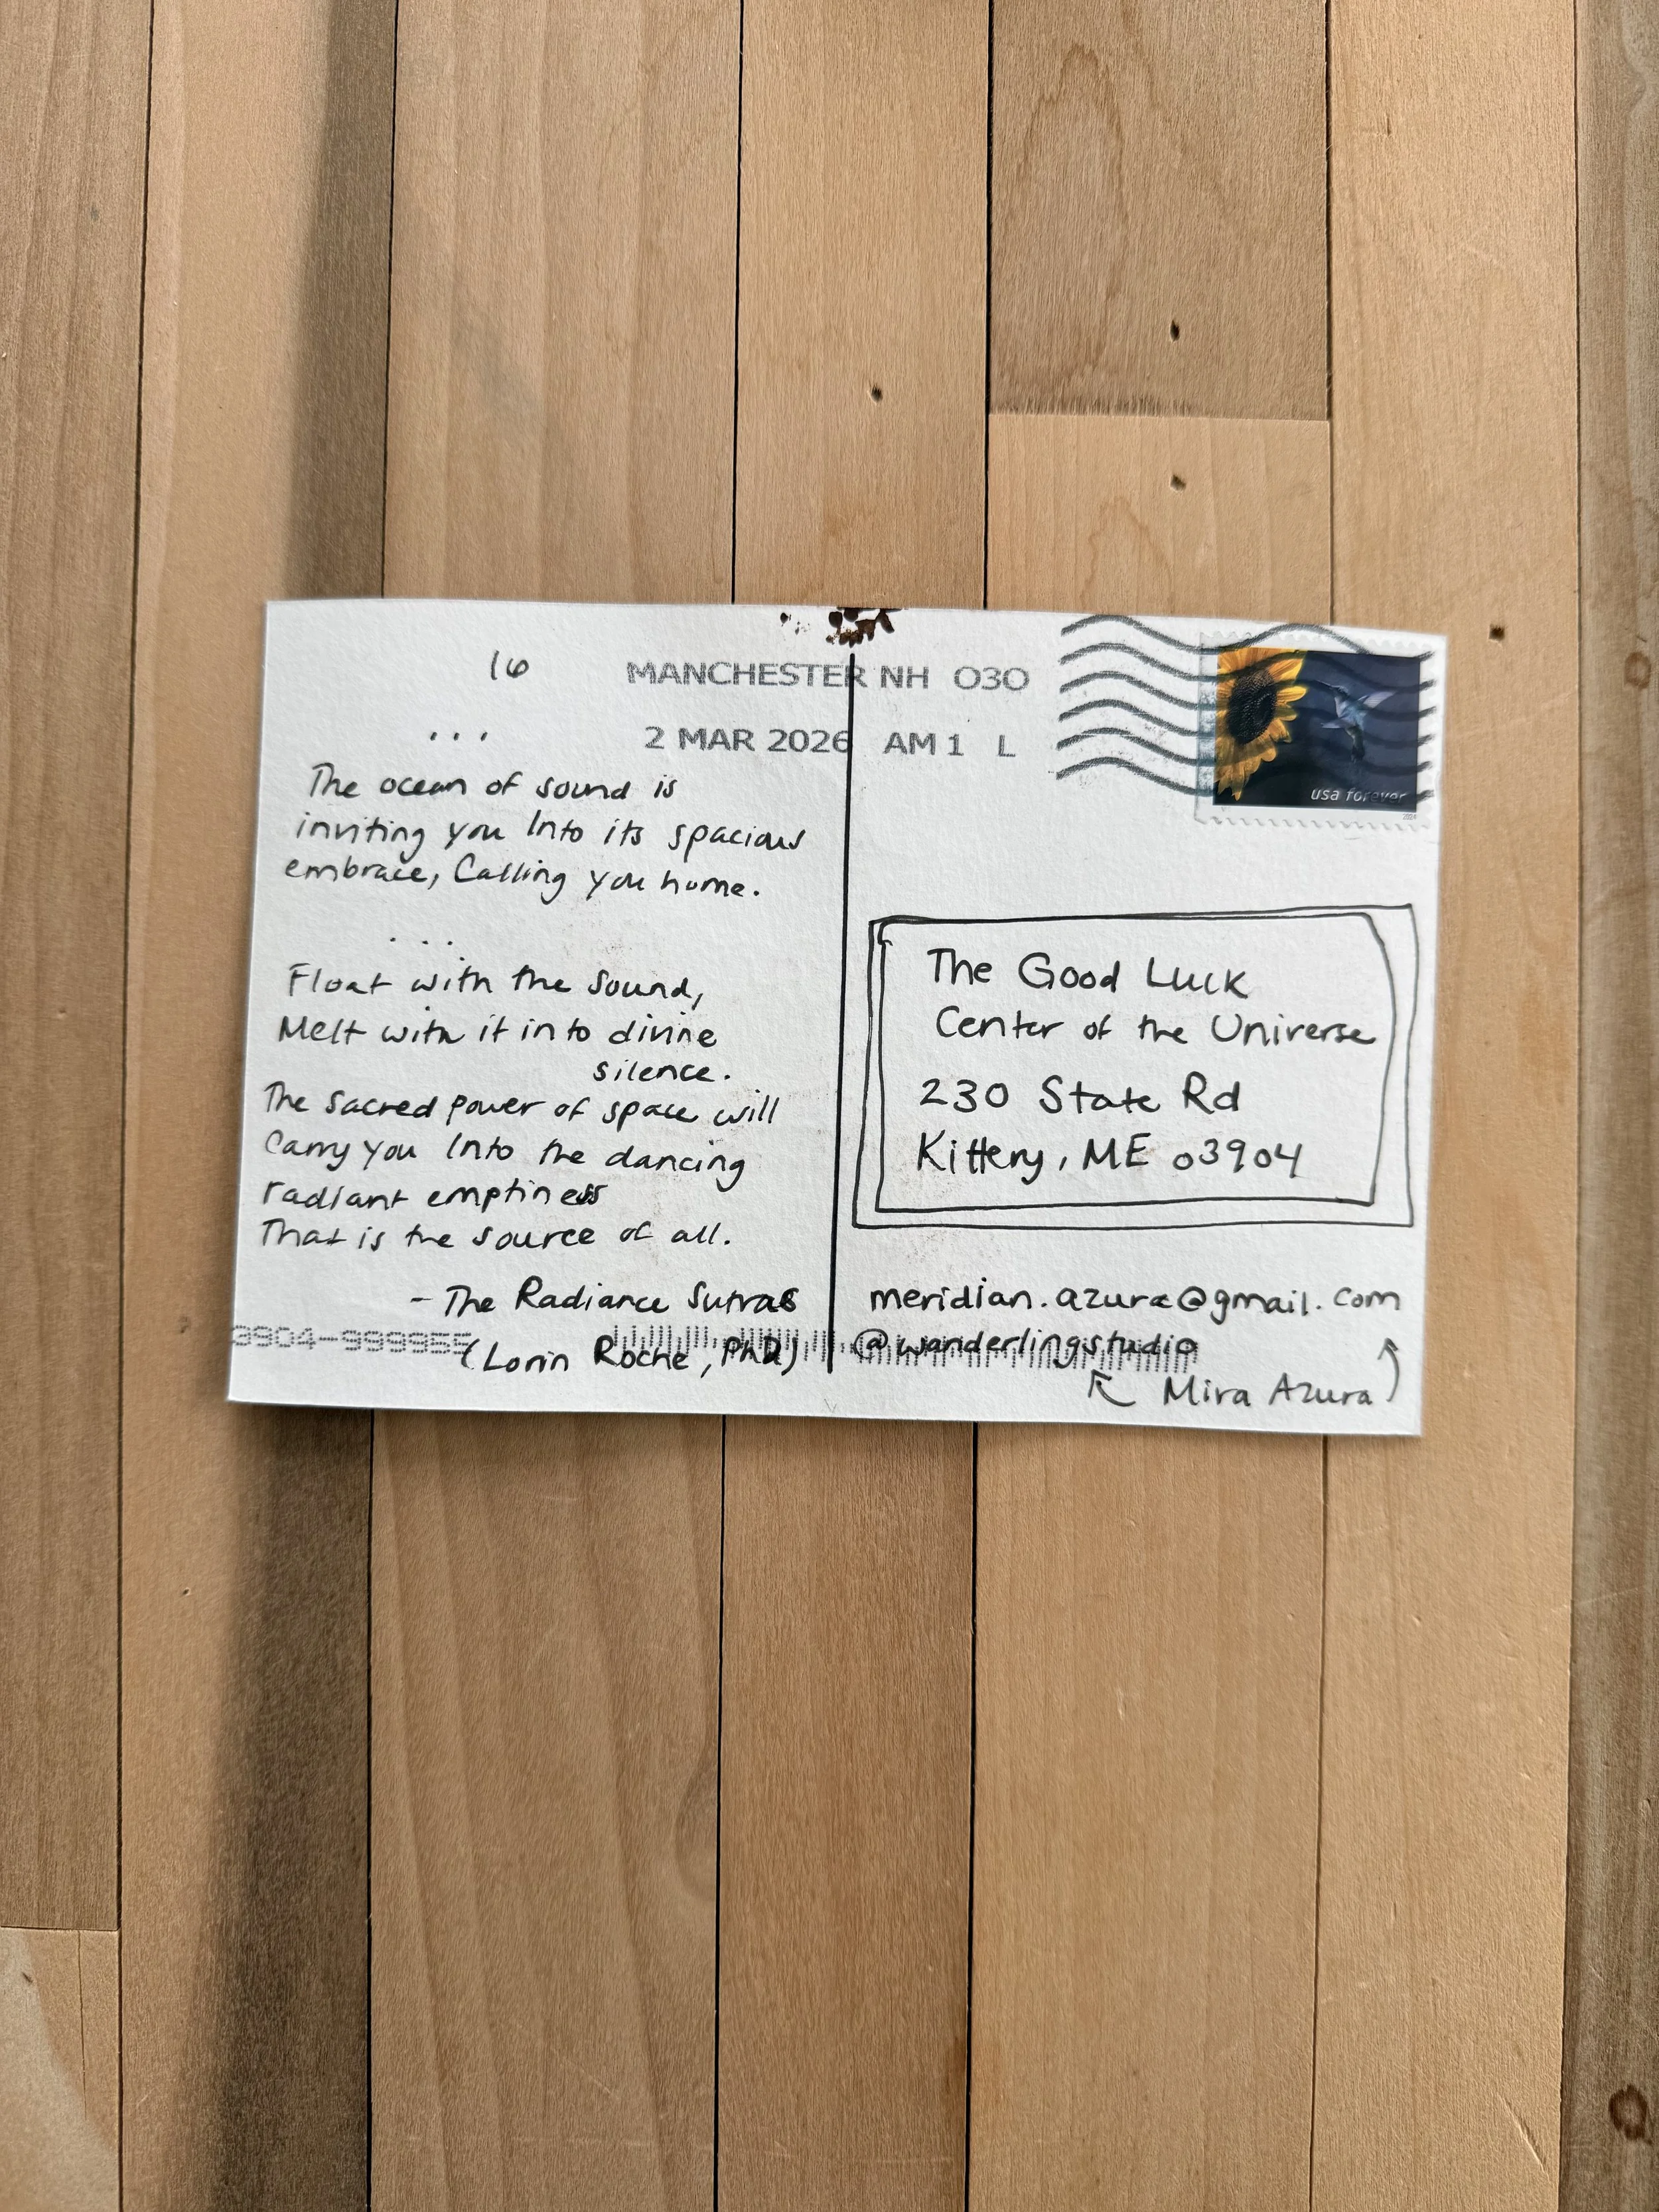 16
MANCHESTER NH 030
2 MAR 2026 AM 1 L
usa forever
2024
...
The ocean of sound is
inviting you Into its spacious
embrace, Calling you home.
...
Float with the sound,
Melt with it into divine
silence.
The sacred power of space will
Carry you Into the dancing
radiant emptiness
That is the source of all.
- The Radiance Sutras
(Lorin Roche, PhD)
3904-999955
The Good Luck
Center of the Universe
230 State Rd
Kittery, ME 03904
meridian.azura@gmail.com
@wanderlingstudio
Mira Azura